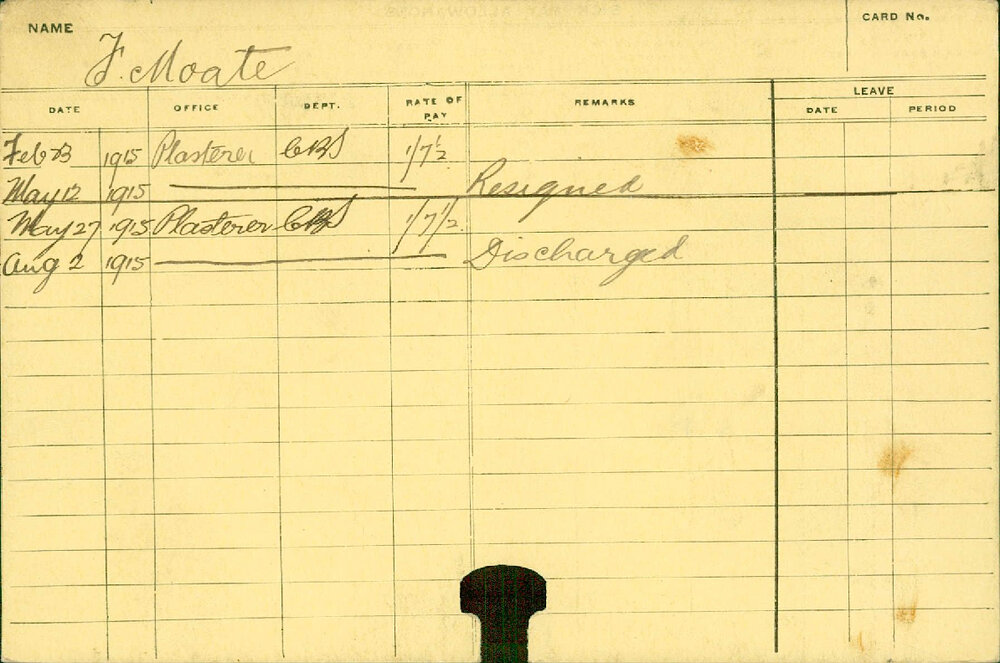 NAME
CARD No.
F. Moate
DATE OFFICE DEPT. RATE OF PAY REMARKS LEAVE
DATE PERIOD
Feb 23 1915 Plasterer CBS 1/7½
May 12 1915 Resigned
May 27 1915 Plasterer CBS 1/7½
Aug 2 1915 Discharged